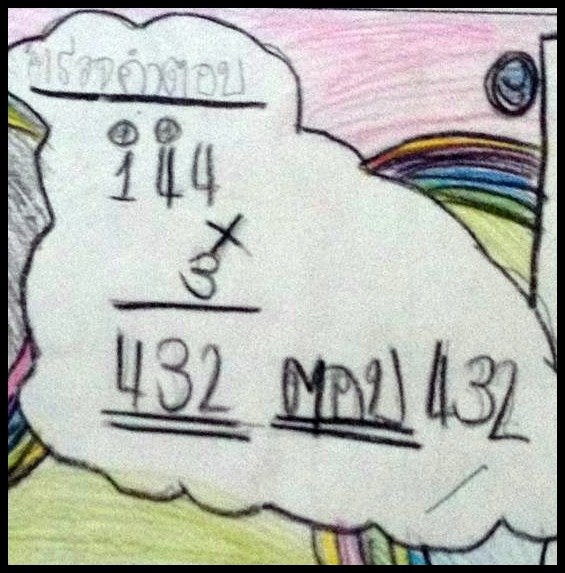 ตรวจคำตอบ
① ①
144
×
3
432 ตอบ 432